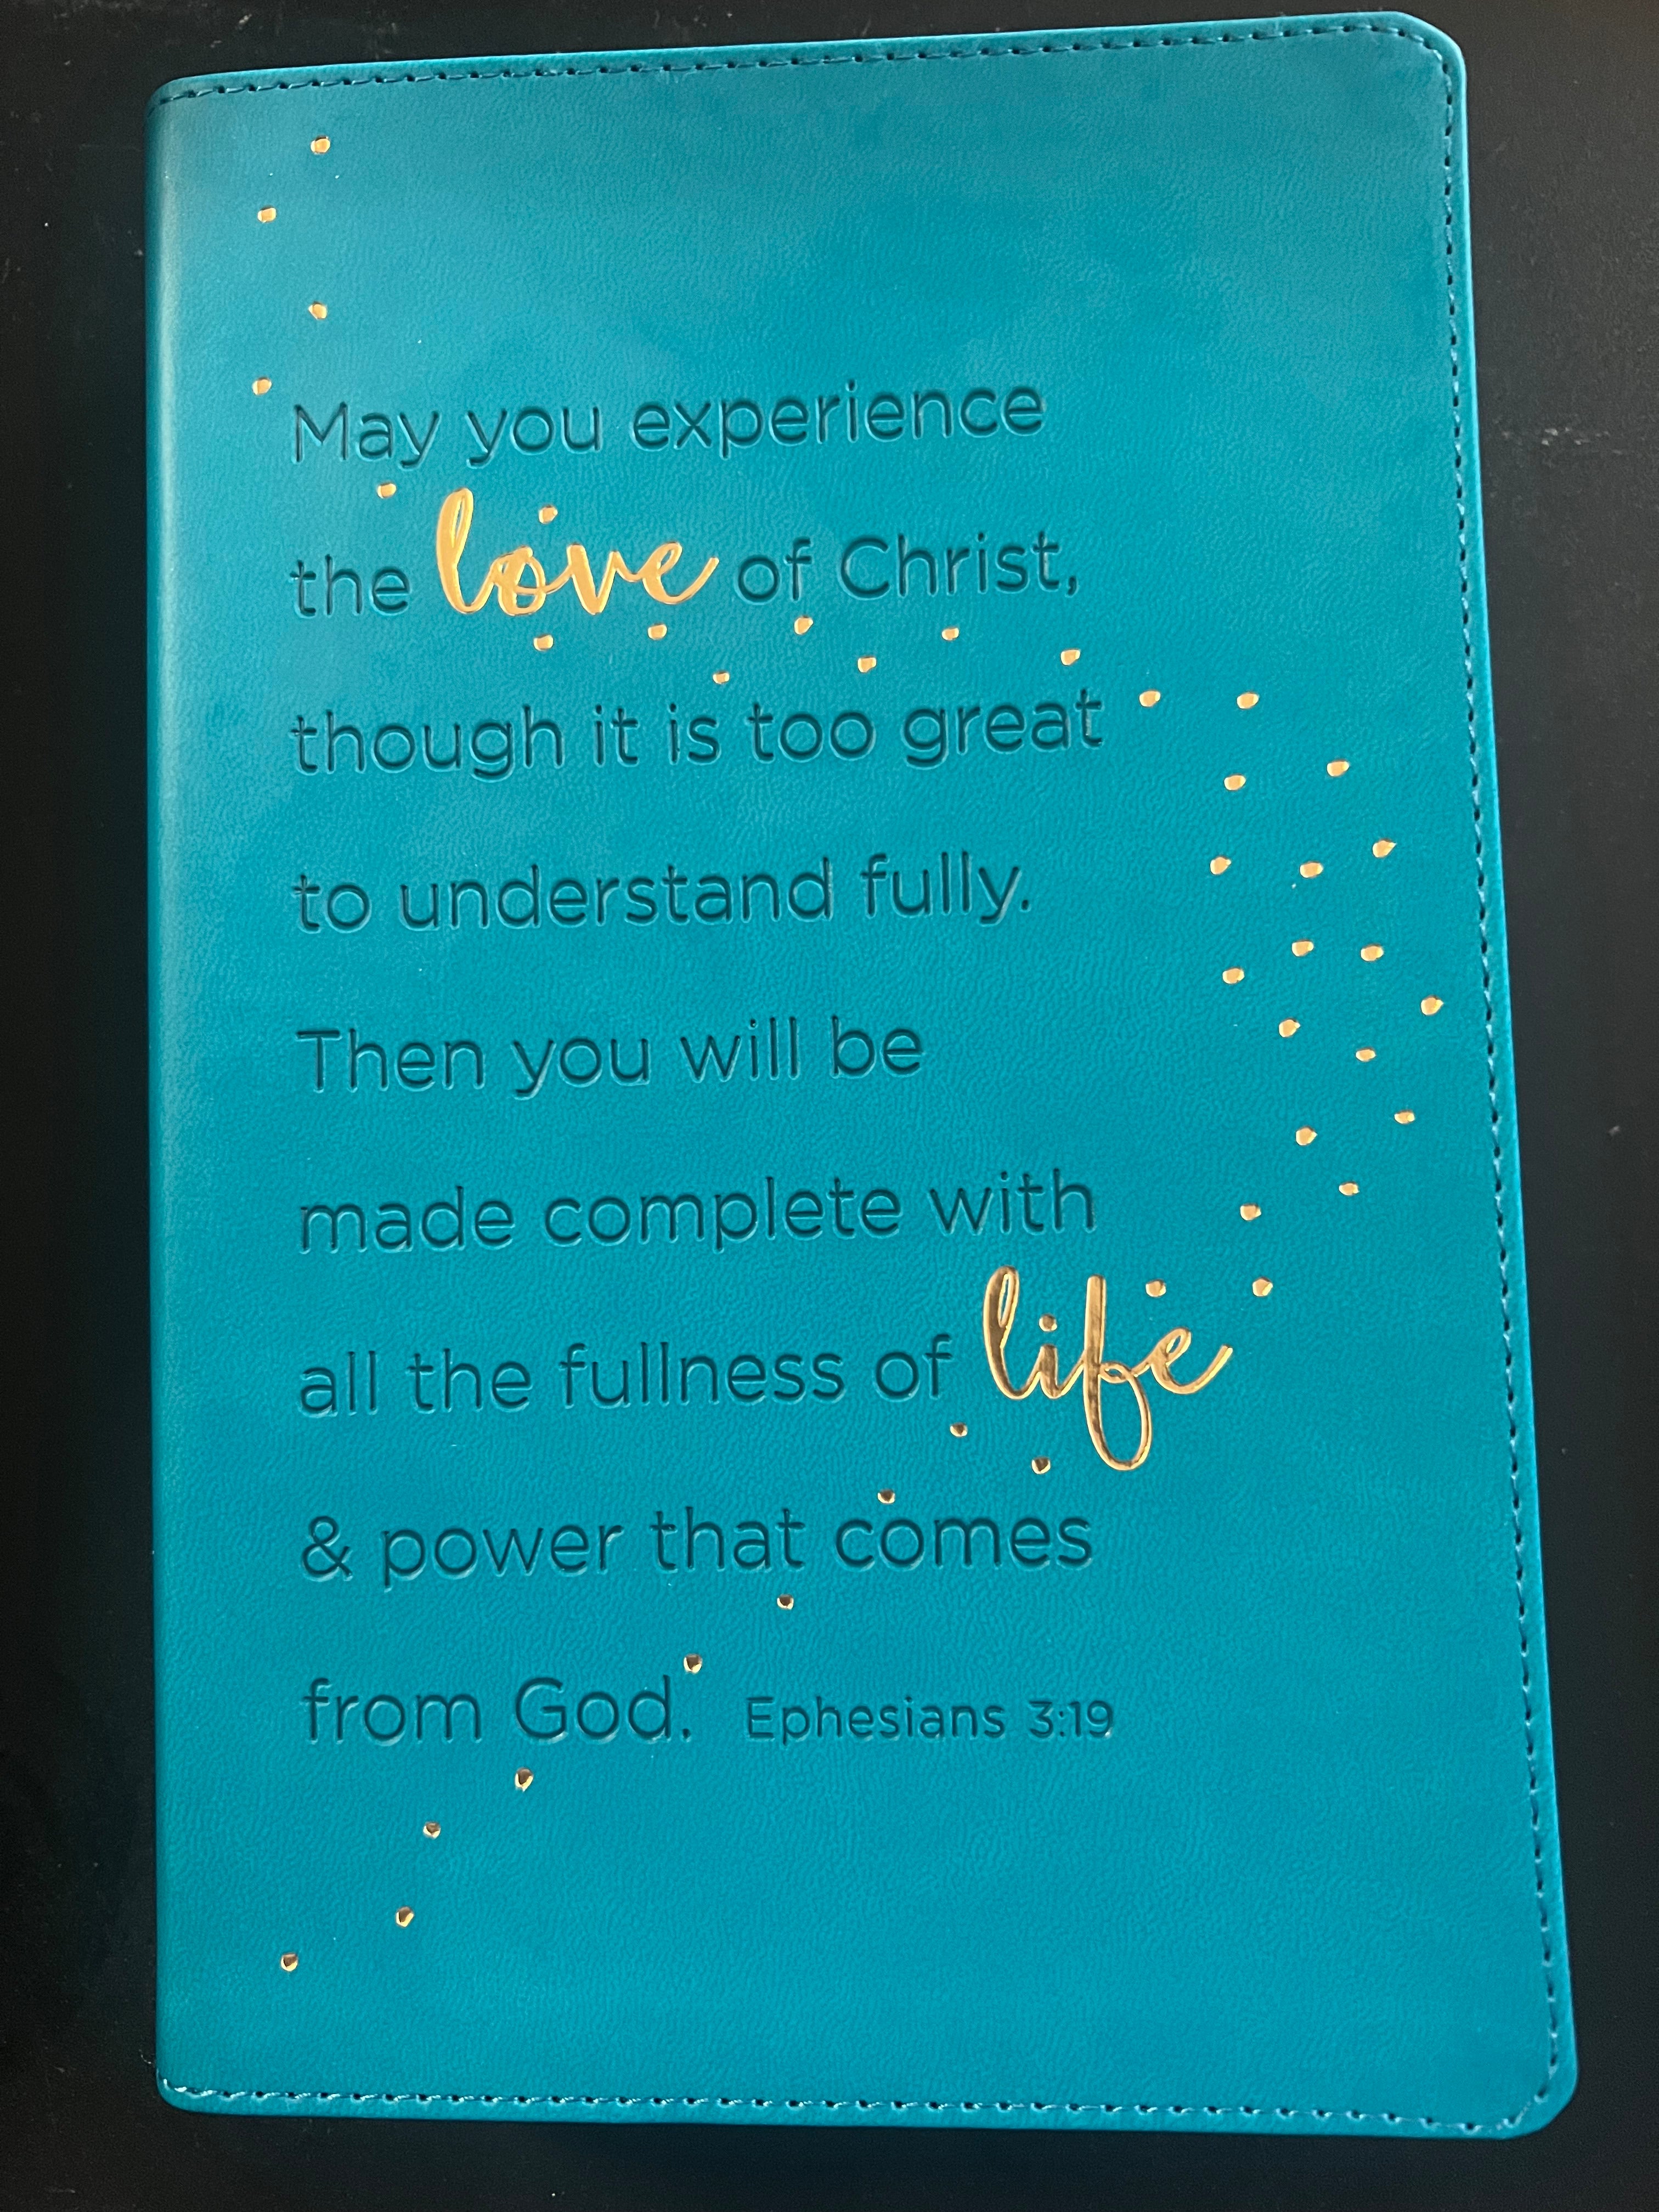 May you experience
the love of Christ,
though it is too great
to understand fully.
Then you will be
made complete with
all the fullness of life
& power that comes
from God. Ephesians 3:19